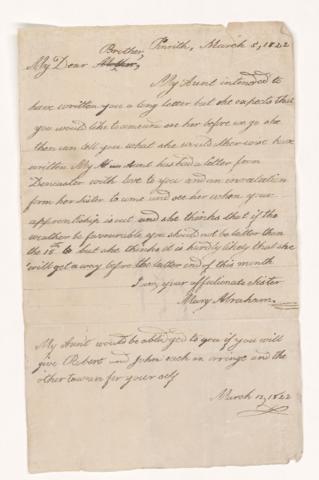 Penrith, March 5, 1822
Brother
My Dear Mother,
My Aunt intended to
have written you a long letter but she expects that
you would like to come on her before we go she
then can tell you what she would other ways have
written My Aunt has had a letter form
Doncaster with love to you and an invatation
form her sister to come and see her when your
apprentship is out and she thinks that if the
weather be favourable you should not be letter then
the 18th to but she thinks it is hardly likely that she
will get a way before the latter end of this month
I am your affectunate sister
Mary Abraham.
My Aunt would be abliged to you if you will
give Robert and John each an orringe and the
other tow are for your self
March 12, 1822